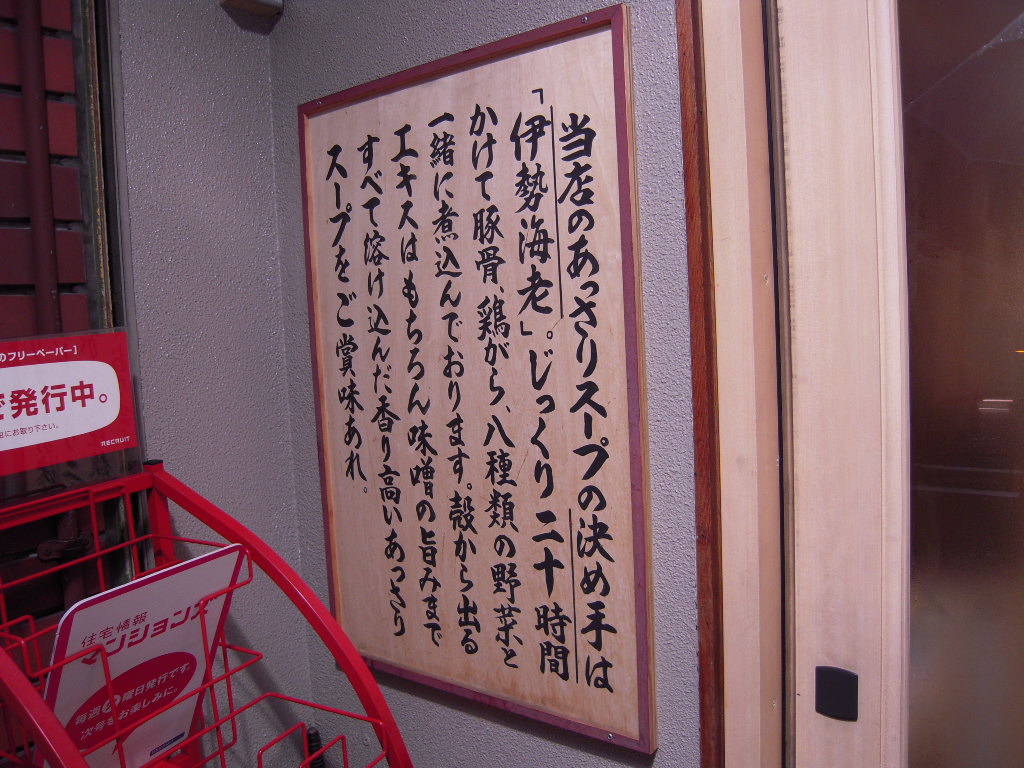 当店のあっさりスープの決め手は
「伊勢海老」。じっくり二十時間
かけて豚骨、鶏がら、八種類の野菜と
一緒に煮込んでおります。殻から出る
エキスはもちろん味噌の旨みまで
すべて溶け込んだ香り高いあっさり
スープをご賞味あれ。
のフリーペーパー]
で発行中。
にお取り下さい。
RECRUIT
住宅情報
マンションズ
毎週 曜日発行です。
次号をお楽しみに。